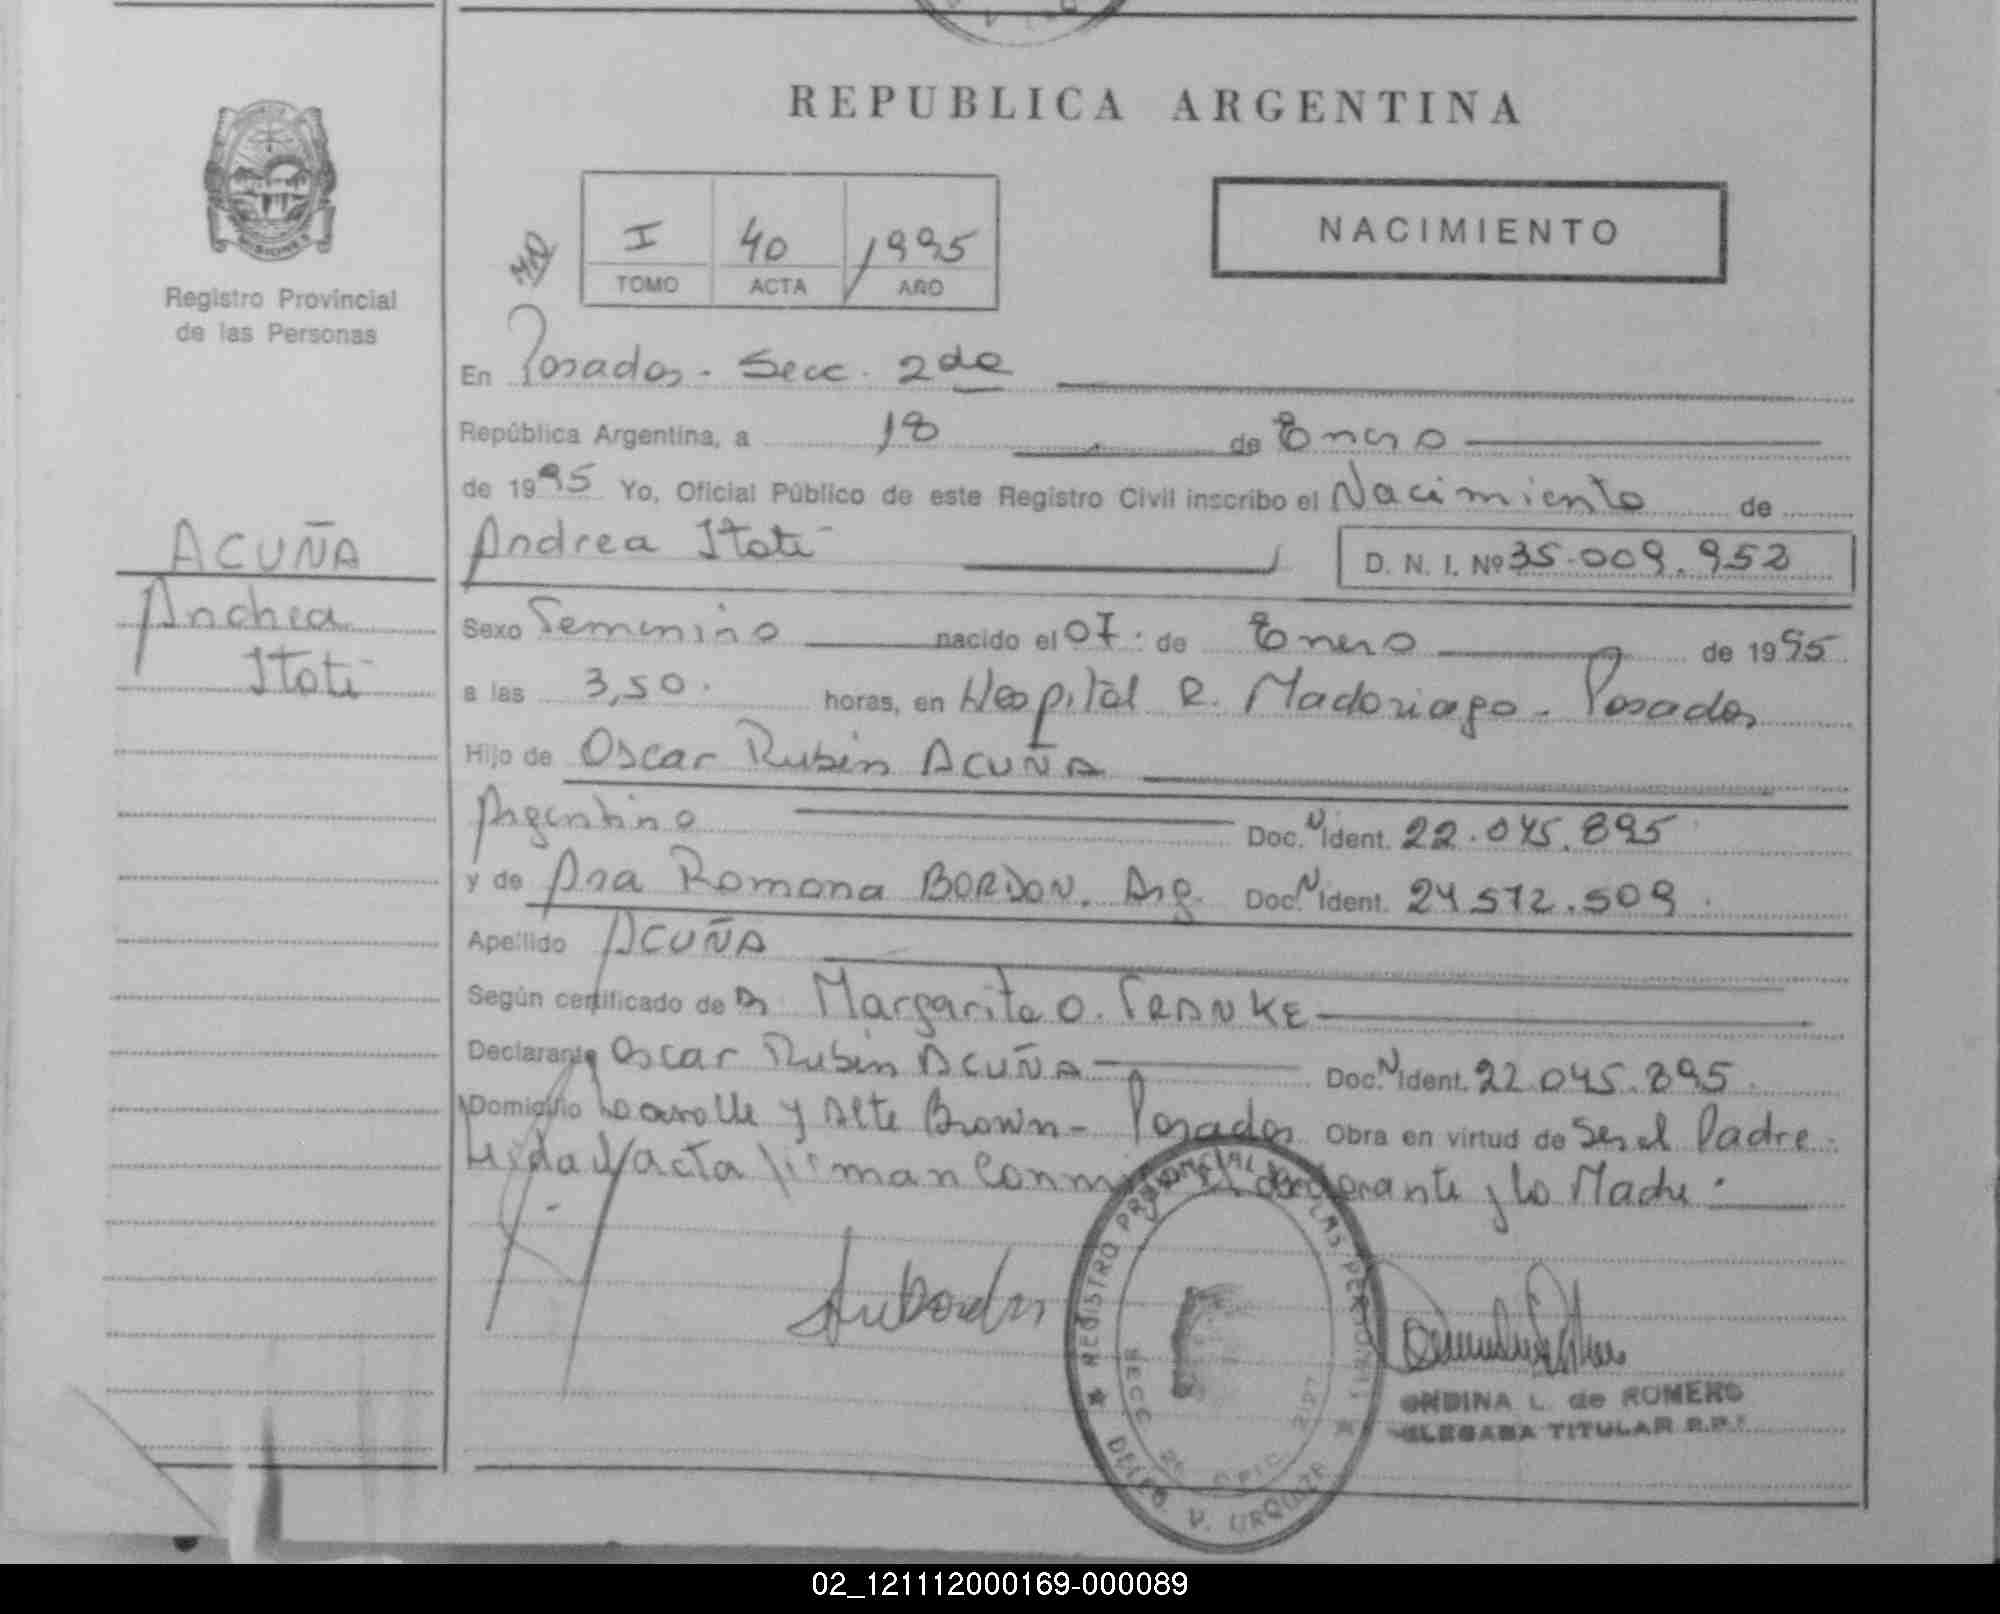 REPUBLICA ARGENTINA
I 40 1995
TOMO ACTA AÑO
NACIMIENTO
Registro Provincial
de las Personas
En Posadas - Secc. 2da
República Argentina, a 18 de Enero
de 1995 Yo, Oficial Público de este Registro Civil inscribo el Nacimiento de
ACUÑA
Andrea
Itati
Andrea Itati
D. N. I. Nº 35.009.952
Sexo Femenino nacido el 07 de Enero de 1995
a las 3,50 horas, en Hospital R. Madariaga - Posadas
Hijo de Oscar Rubén ACUÑA
Argentino Doc. N Ident. 22.045.895
y de Ana Ramona BORDON. Arg. Doc. N Ident. 24.572.509
Apellido ACUÑA
Según certificado de Margarita O. FRANKE
Declarante Oscar Rubén ACUÑA Doc. N Ident. 22.045.895
Domicilio Lavalle y Alte Brown - Posadas Obra en virtud de Ser el Padre.
Leída el acta firman conmigo el declarante y la Madre.
REGISTRO PROVINCIAL DE LAS PERSONAS
SECC 2a OFIC
DELEG. V. URQUIZA
ONDINA L. de ROMERO
DELEGADA TITULAR R.P.
02_121112000169-000089